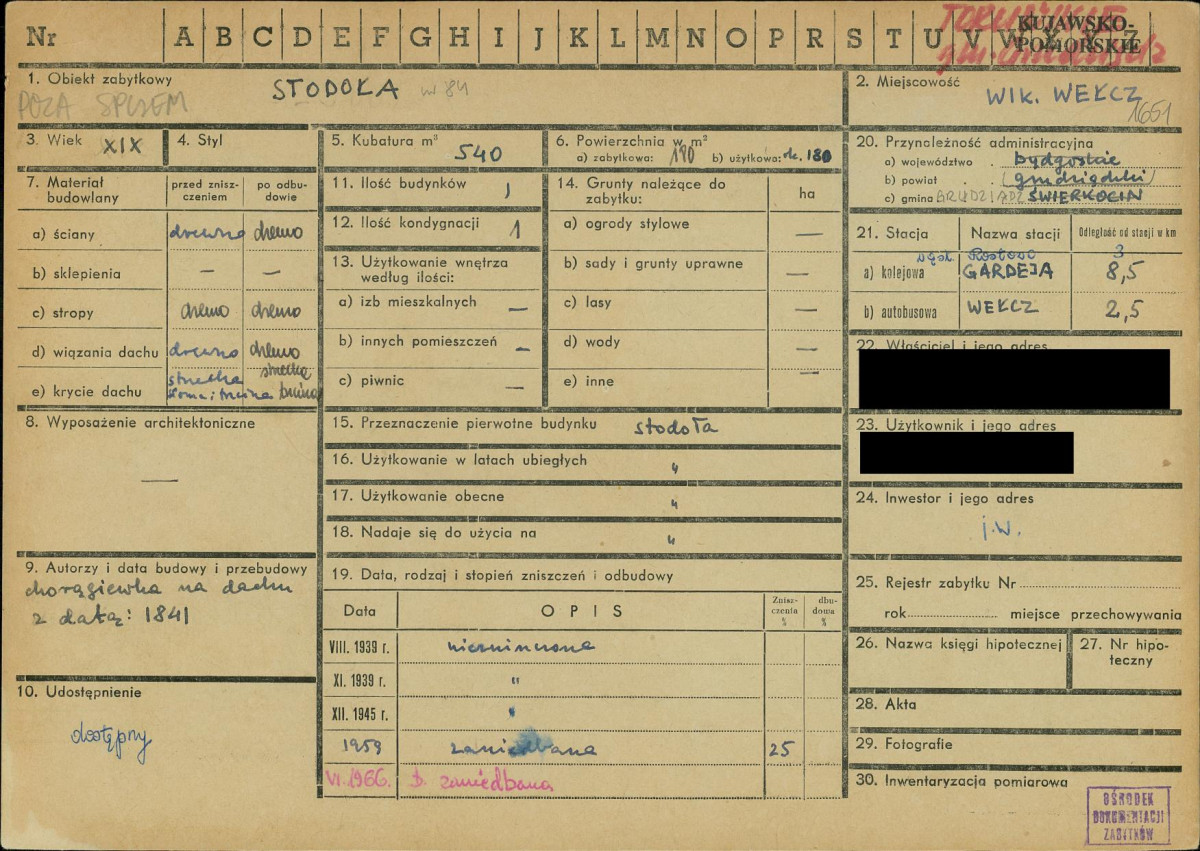 Nr A B C D E F G H I J K L M N O P R S T U V W X Y Z
TORUŃSKIE
KUJAWSKO-
POMORSKIE
1. Obiekt zabytkowy
STODOŁA w 84
POZA SPISEM
2. Miejscowość
WIK. WEŁCZ
1651
3. Wiek XIX
4. Styl
5. Kubatura m³
540
6. Powierzchnia w m²
a) zabytkowa: 190 b) użytkowa: ok. 180
7. Materiał budowlany
przed zniszczeniem
po odbudowie
a) ściany drewno drewno
b) sklepienia — —
c) stropy drewno drewno
d) wiązania dachu drewno drewno
e) krycie dachu strzecha słoma i trzcina strzecha trzcina
8. Wyposażenie architektoniczne
—
9. Autorzy i data budowy i przebudowy
chorągiewka na dachu
z datą: 1841
10. Udostępnienie
dostępny
11. Ilość budynków 1
12. Ilość kondygnacji 1
13. Użytkowanie wnętrza
według ilości:
a) izb mieszkalnych —
b) innych pomieszczeń —
c) piwnic —
14. Grunty należące do
zabytku:
ha
a) ogrody stylowe —
b) sady i grunty uprawne —
c) lasy —
d) wody —
e) inne —
15. Przeznaczenie pierwotne budynku stodoła
16. Użytkowanie w latach ubiegłych "
17. Użytkowanie obecne "
18. Nadaje się do użycia na "
19. Data, rodzaj i stopień zniszczeń i odbudowy
Data OPIS Zniszczenia % dbudowa %
VIII. 1939 r. niezniszczona
XI. 1939 r. "
XII. 1945 r. "
1959 zaniedbana 25
VI. 1966. b. zaniedbana
20. Przynoleżność administracyjna
a) województwo . bydgoskie
b) powiat . . (grudziądzki)
c) gmina GRUDZIĄDZ ŚWIERKOCIN
21. Stacja Nazwa stacji Odległość od stacji w km
a) kolejowa GARDEJA 3 8,5
b) autobusowa WEŁCZ 2,5
22. Właściciel i jego adres
23. Użytkownik i jego adres
24. Inwestor i jego adres
j.w.
25. Rejestr zabytku Nr
rok miejsce przechowywania
26. Nazwa księgi hipotecznej
27. Nr hipoteczny
28. Akta
29. Fotografie
30. Inwentaryzacja pomiarowa
OŚRODEK
DOKUMENTACJI
ZABYTKÓW